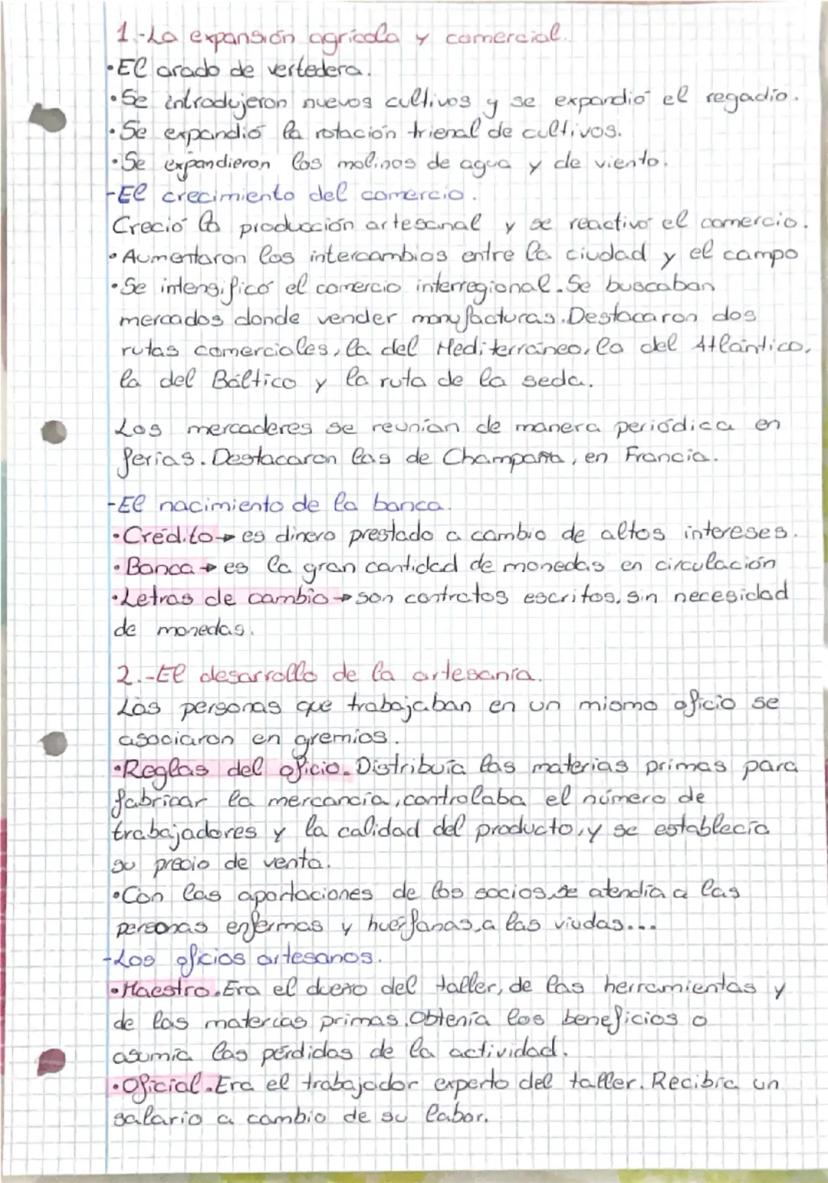 1.-La expansión agrícola y comercial.
•El arado de vertedera.
•Se introdujeron nuevos cultivos y se expandió el regadío.
•Se expandió la rotación trienal de cultivos.
•Se expandieron los molinos de agua y de viento.
-El crecimiento del comercio.
Creció la producción artesanal y se reactivó el comercio.
•Aumentaron los intercambios entre la ciudad y el campo
•Se intensificó el comercio interregional. Se buscaban
mercados donde vender manufacturas. Destacaron dos
rutas comerciales, la del Mediterráneo, la del Atlántico,
la del Báltico y la ruta de la seda.
Los mercaderes se reunían de manera periódica en
ferias. Destacaron las de Champaña, en Francia.
-El nacimiento de la banca.
•Crédito→ es dinero prestado a cambio de altos intereses.
•Banca→ es la gran cantidad de monedas en circulación
•Letras de cambio→ son contratos escritos, sin necesidad
de monedas.
2.-El desarrollo de la artesanía.
Las personas que trabajaban en un mismo oficio se
asociaron en gremios.
•Reglas del oficio. Distribuía las materias primas para
fabricar la mercancía, controlaba el número de
trabajadores y la calidad del producto, y se establecía
su precio de venta.
•Con las aportaciones de los socios, se atendía a las
personas enfermas y huérfanas, a las viudas...
-Los oficios artesanos.
•Maestro. Era el dueño del taller, de las herramientas y
de las materias primas. Obtenía los beneficios o
asumía las pérdidas de la actividad.
•Oficial. Era el trabajador experto del taller. Recibía un
salario a cambio de su labor.